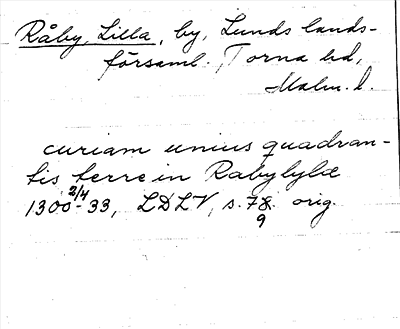 Råby, Lilla, by, Lunds lands-
församl. Torna hd,
Malm. l.
curiam unius quadran-
tis terre in Rabylylæ
2/4
1300-33, LDLV, s. 78. orig.
9